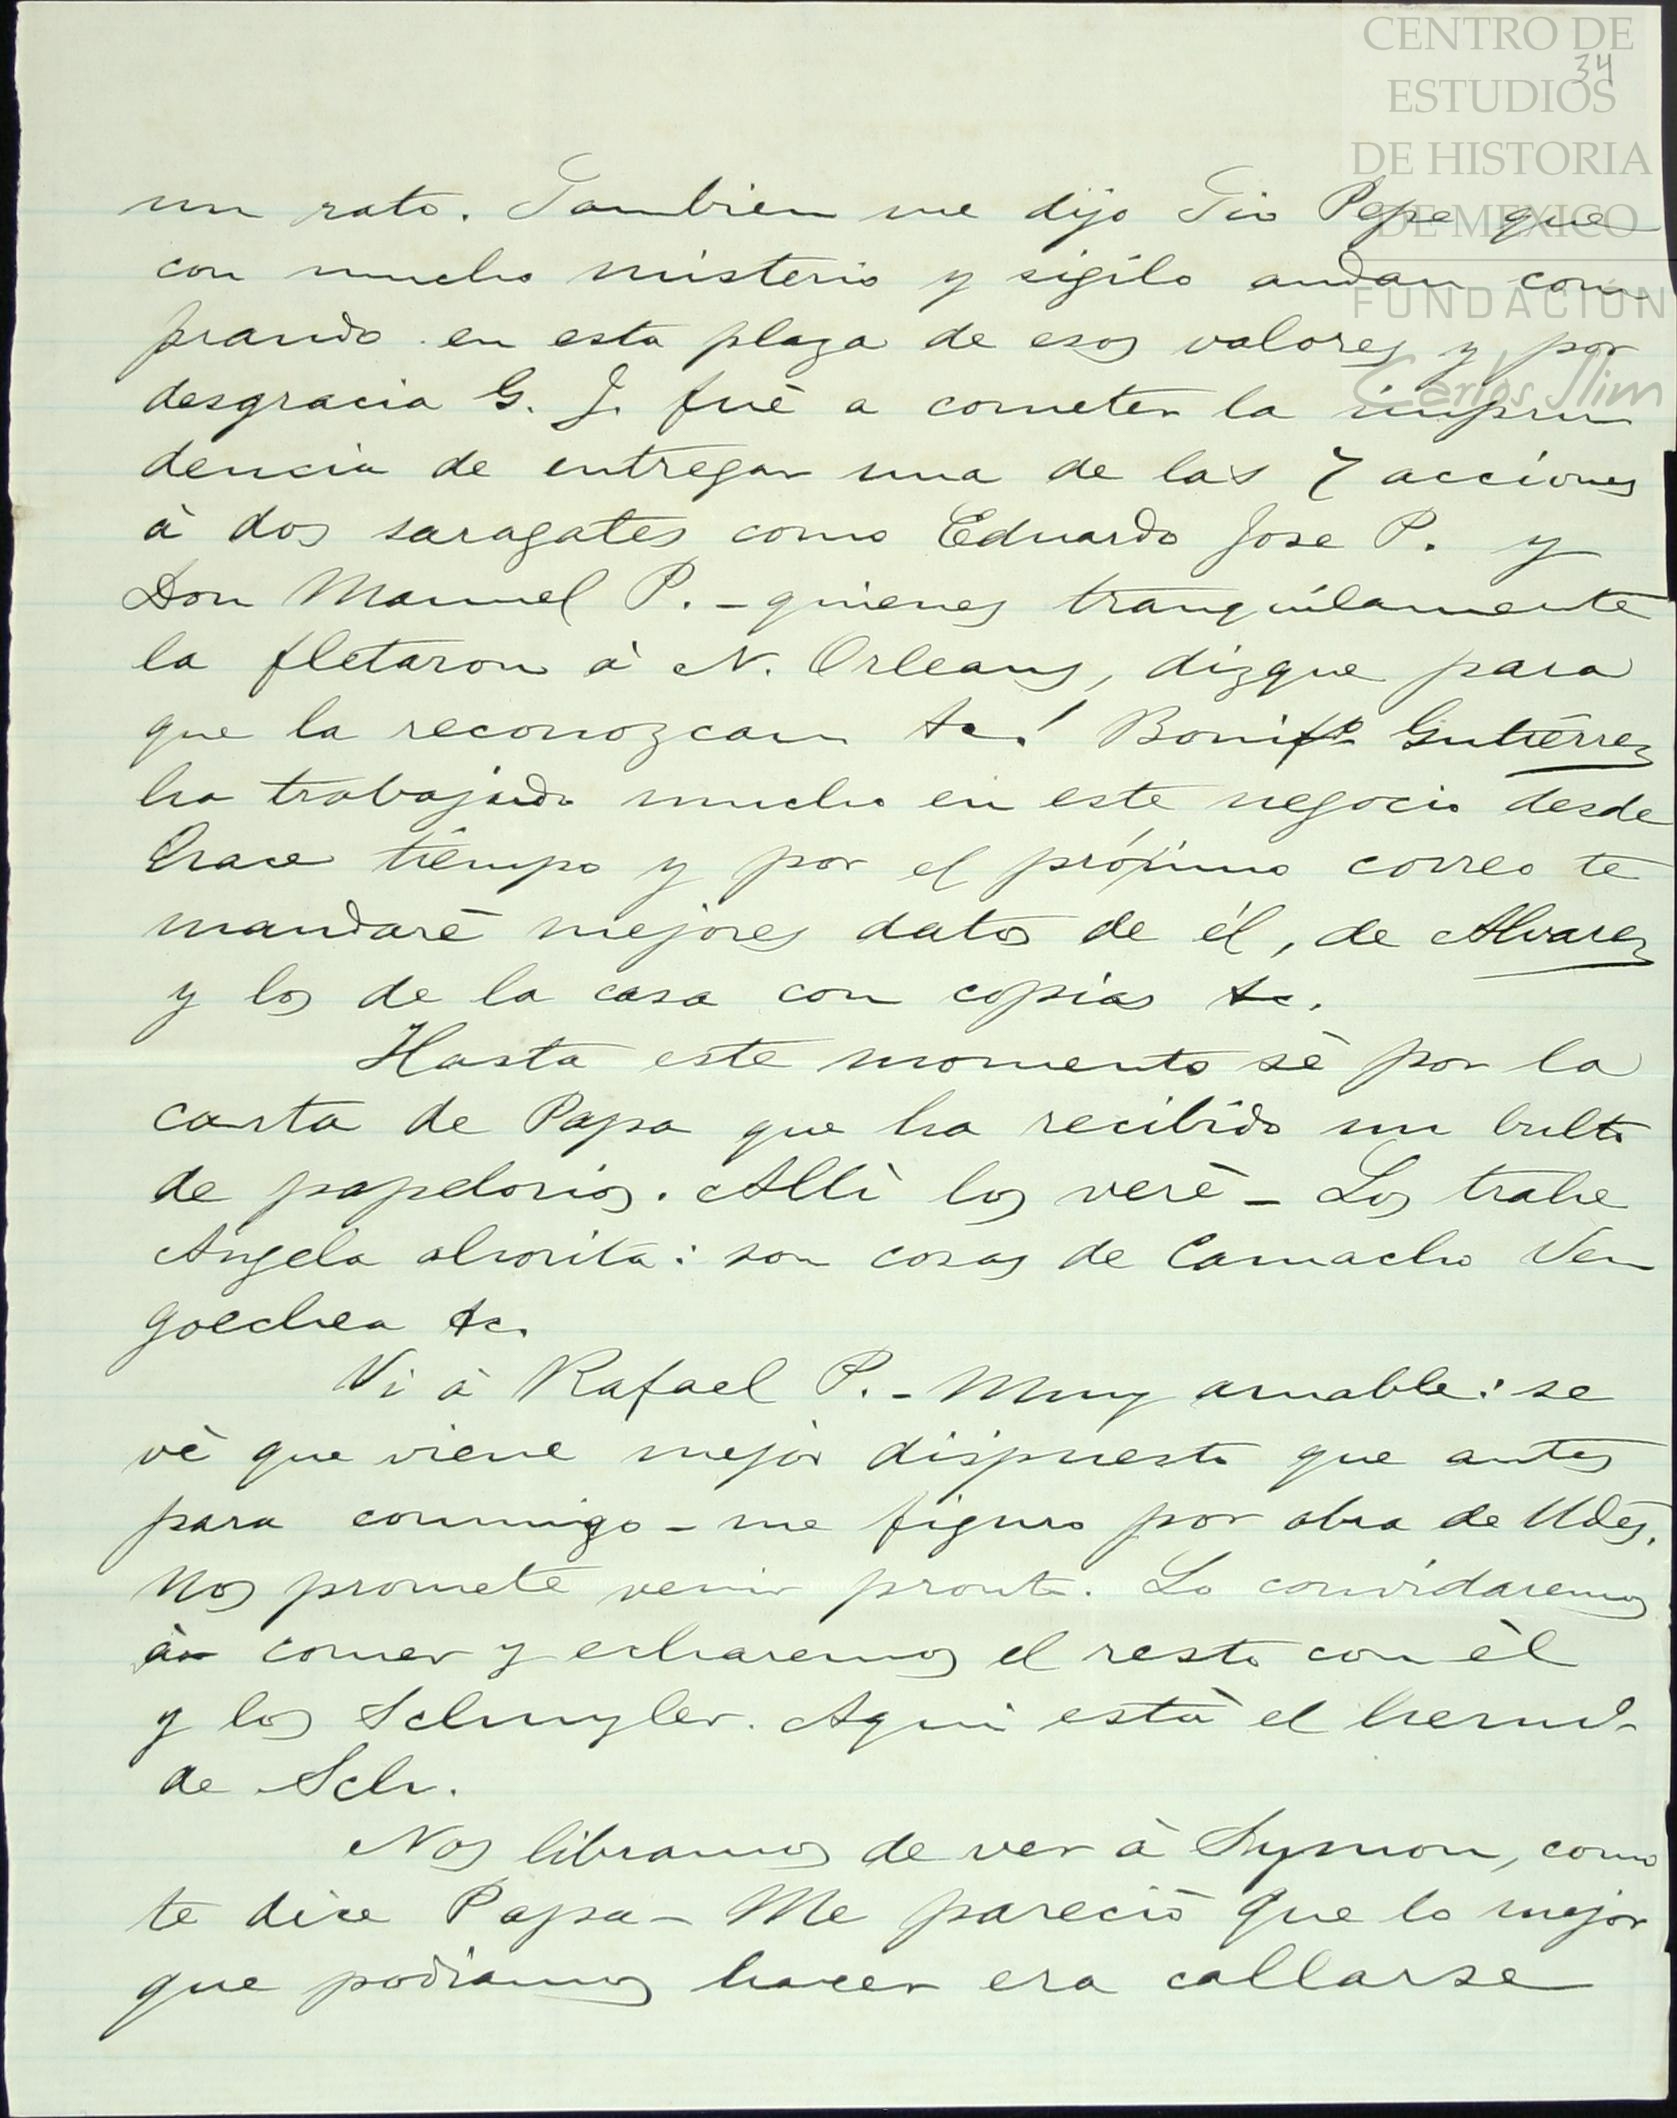 CENTRO DE
ESTUDIOS
DE HISTORIA
DE MEXICO
FUNDACION
Carlos Slim
34
un rato. Tambien me dijo Tio Pepe que
con mucho misterio y sigilo andan com
prando en esta plaza de esos valores y por
desgracia G. J. fué a cometer la impru
dencia de entregar una de las 7 acciones
à dos saragates como Eduardo Jose P. y
Don Manuel P. – quienes tranquilamente
la fletaron à N. Orleans, dizque para
que la reconozcan &c.! Bonifo Gutiérrez
ha trabajado mucho en este negocio desde
hace tiempo y por el próximo correo te
mandaré mejores datos de él, de Alvarez
y los de la casa con copias &c.
Hasta este momento sé por la
carta de Papa que ha recibido un bulto
de papelorios. Allì los veré – Los trahe
Angela ahorita: son cosas de Camacho Ven
goechea &c.
Vi à Rafael P. – Muy amable: se
vé que viene mejor dispuesto que antes
para conmigo – me figuro por obra de Udes.
Nos promete venir pronto. Lo convidaremos
à comer y echaremos el resto con èl
y los Schuyler. Aqui està el hermo.
de Sch.
Nos libramos de ver à Symon, como
te dice Papa – Me pareciò que lo mejor
que podiamos hacer era callarse